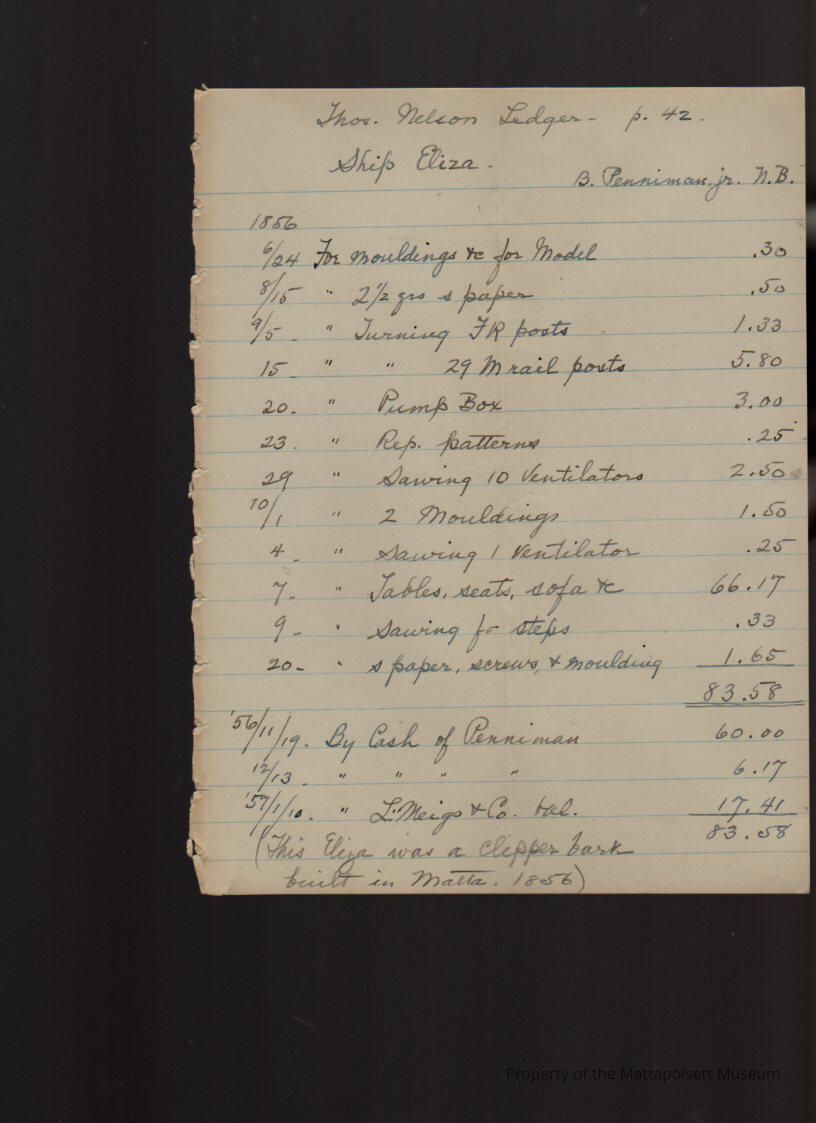 Thos. Nelson Ledger - p. 42.
Ship Eliza -
B. Penniman, jr. N.B.
1856
6/24 For mouldings &c for Model .30
8/15 " 2 1/2 qrs s paper .50
9/5 - " Turning FR posts 1.33
15 - " " 29 M rail posts 5.80
20. " Pump Box 3.00
23. " Rep. patterns .25
29 " Sawing 10 Ventilators 2.50
10/1 " 2 Mouldings 1.50
4 - " Sawing 1 Ventilator .25
7 - " Tables, seats, sofa &c 66.17
9 - " Sawing for steps .33
20 - " s paper, screws, & moulding 1.65
83.58
'56/11/19. By Cash of Penniman 60.00
12/13. " " " " 6.17
'57/1/10. " L. Meigs & Co. bal. 17.41
83.58
(This Eliza was a clipper bark
built in Matta. 1856)
Property of the Mattapoisett Museum